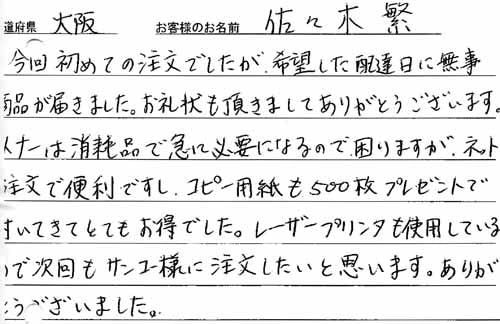 道府県 大阪 お客様のお名前 佐々木 繁
今回初めての注文でしたが、希望した配達日に無事
商品が届きました。お礼状も頂きましてありがとうございます。
ナーは消耗品で急に必要になるので困りますが、ネット
注文で便利ですし、コピー用紙も500枚プレゼントで
付いてきてとてもお得でした。レーザープリンタも使用している
ので次回もサンユー様に注文したいと思います。ありが
とうございました。